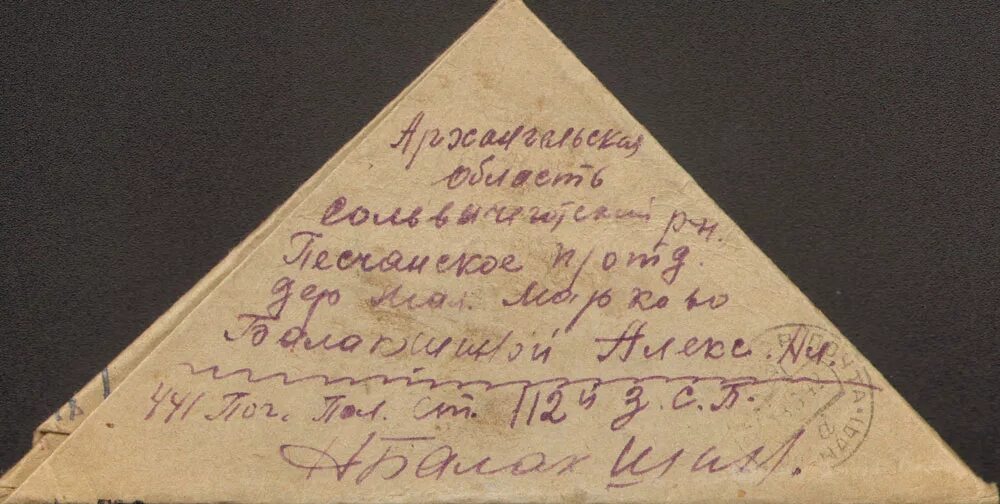 Архангельская
область
Сольвычеготский р-н.
Песчанское п/отд.
дер Мал. Марково
Балакшиной Алекс. Ал.
441 Поч. Пол. Ст. 112 й З.С.П.
АБалакшин.